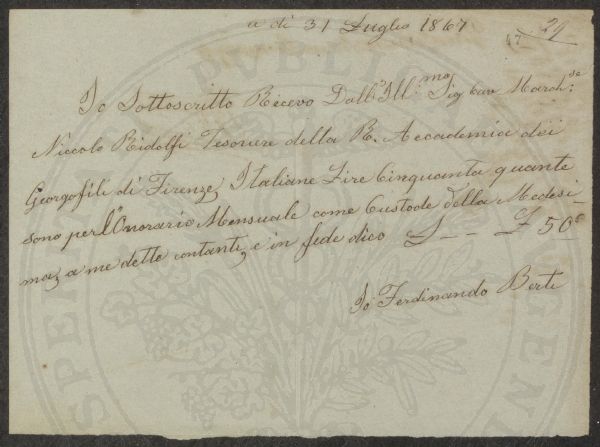 a dì 31 Luglio 1867
47 29
Io Sottoscritto Ricevo Dall'Ill.mo Sig Cav March.se
Niccolo Ridolfi Tesoriere della R. Accademia dei
Georgofili di Firenze Italiane Lire Cinquanta quante
sono per l'Onorario Mensuale come Custode della Medesi
ma, a me dette contanti, e in fede dico £ -- £ 50
Io Ferdinando Berti